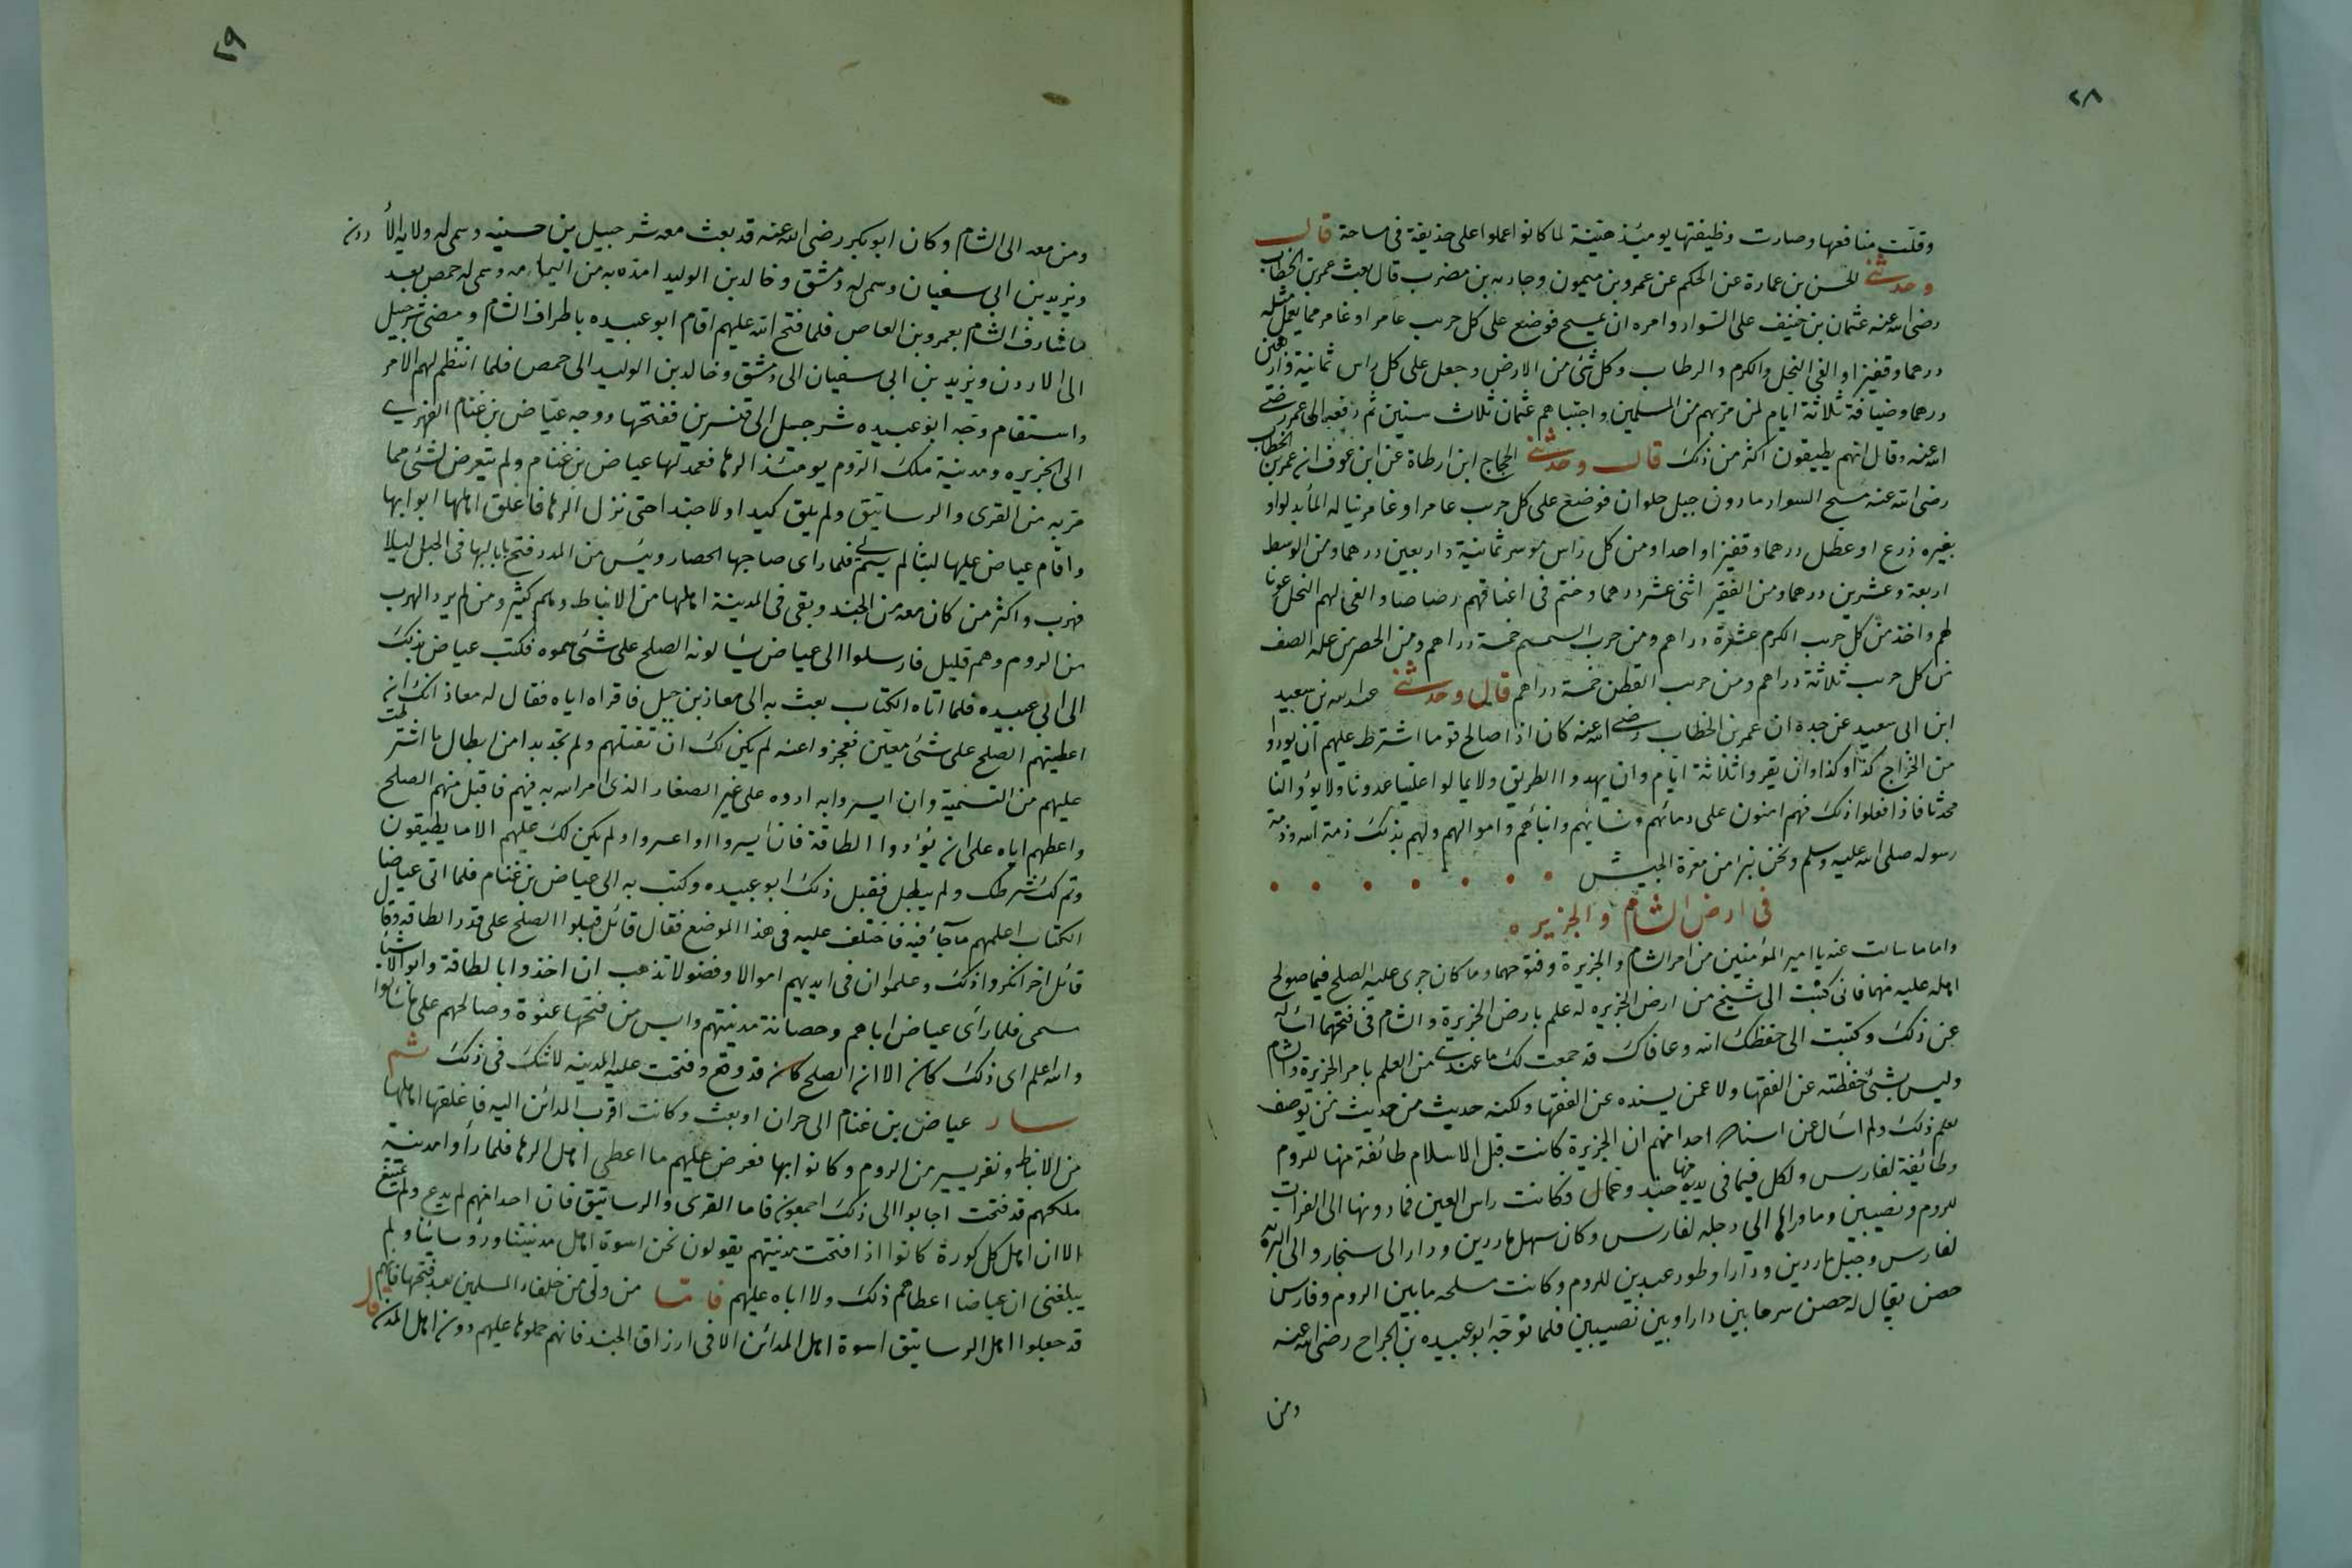 ٢٨
وقلّت منافعها وصارت وظيفتها يومئذ هينة لما كانوا عملوا على حذيفة فى مساحة قال
وحدثنى الحسن بن عمارة عن الحكم عن عمرو بن ميمون وجاريه بن مضرب قال بعث عمر بن الخطاب
رضى الله عنه عثمان بن حنيف على السواد وامره ان يمسح فوضع على كل جريب عامر او غامر مما يعمل مثله
درهما وقفيزا والغى النخل والكرم والرطاب وكل شئ من الارض وجعل على كل راس ثمانية واربعين
درهما وضيافة ثلاثة ايام لمن مر بهم من المسلمين واجتباهم عثمان ثلاث سنين ثم رفعه الى عمر رضى
الله عنه وقال انهم يطيقون اكثر من ذلك قال وحدثنى الحجاج ابن ارطاة عن ابن عوف ان عمر بن الخطاب
رضى الله عنه مسح السواد ما دون جبل حلوان فوضع على كل جريب عامر او غامر يناله الماء بدلو او
بغيره زرع او عطل درهما وقفيزا واحدا ومن كل راس موسر ثمانية واربعين درهما ومن الوسط
اربعة وعشرين درهما ومن الفقير اثنى عشر درهما وختم فى اعناقهم رصاصا والغى لهم النخل عونا
لهم واخذ من كل جريب الكرم عشرة دراهم ومن جريب السمسم خمسة دراهم ومن الخضر من غلة الصيف
من كل جريب ثلاثة دراهم ومن جريب القطن خمسة دراهم قال وحدثنى عبد الله بن سعيد
ابن ابى سعيد عن جده ان عمر بن الخطاب رضى الله عنه كان اذا صالح قوما اشترط عليهم ان يودوا
من الخراج كذا وكذا وان يقروا ثلاثة ايام وان يهدوا الطريق ولا يمالوا علينا عدونا ولا يؤوا لنا
محدثا فاذا فعلوا ذلك فهم امنون على دمائهم ونسائهم وابنائهم واموالهم ولهم بذلك ذمة الله وذمة
رسوله صلى الله عليه وسلم ونحن نبرا من معرة الجيش
فى ارض الشام والجزيره
واما ما سالت عنه يا امير المؤمنين من امر الشام والجزيرة وفتوحهما وما كان جرى عليه الصلح فيما صولح
اهله عليه منهما فانى كتبت الى شيخ من ارض الجزيره له علم بارض الجزيرة والشام فى فتحهما اساله
عن ذلك وكتبت الى حفظك الله وعافاك قد جمعت لك ما عندى من العلم بامر الجزيرة والشام
وليس بشئ حفظته عن الفقها ولا عمن يسنده عن الفقها ولكنه حديث من حديث من يوصف
بعلم ذلك ولم اسال عن اسناده احدا منهم ان الجزيرة كانت قبل الاسلام طائفة منها للروم
وطائفة لفارس ولكل فيما فى يديه منها جند وعمال وكانت راس العين فما دونها الى الفرات
للروم ونصيبين وما وراها الى دجله لفارس وكان سهل ماردين ودارا الى سنجار والى البرية
لفارس وجبل ماردين ودارا وطور عبدين للروم وكانت مسلحه ما بين الروم وفارس
حصن يقال له حصن سرجا بين دارا وبين نصيبين فلما توجه ابو عبيده بن الجراح رضى الله عنه
ومن
٢٩
ومن معه الى الشام وكان ابو بكر رضى الله عنه قد بعث معه شرحبيل بن حسنه وسمى له ولاية الأردن
ويزيد بن ابى سفيان وسمى له دمشق وخالد بن الوليد امده به من اليمامه وسمى له حمص بعد
ما شارف الشام بعمرو بن العاص فلما فتح الله عليهم اقام ابو عبيده باطراف الشام ومضى شرحبيل
الى الاردن ويزيد بن ابى سفيان الى دمشق وخالد بن الوليد الى حمص فلما انتظم لهم الامر
واستقام وجه ابو عبيده شرحبيل الى قنسرين ففتحها ووجه عياض بن غنام الفهرى
الى الجزيره ومدينة ملك الروم يومئذ الرها فعمد لها عياض بن غنام ولم يتعرض لشئ مما
مر به من القرى والرساتيق ولم يلق كيدا ولا جندا حتى نزل الرها فاغلق اهلها ابوابها
واقام عياض عليها لبثا لم يسم لى فلما راى صاحبها الحصار ويئس من المدد فتح بابا لها فى الجبل ليلا
فهرب واكثر من كان معه من الجند وبقى فى المدينة اهلها من الانباط وهم كثير ومن لم يرد الهرب
من الروم وهم قليل فارسلوا الى عياض يسالونه الصلح على شئ سموه فكتب عياض بذلك
الى ابى عبيده فلما اتاه الكتاب بعث به الى معاذ بن جبل فاقراه اياه فقال له معاذ انك ان
اعطيتهم الصلح على شئ معين فعجزوا عنه لم يكن لك ان تقتلهم ولم تجد بدا من ابطال ما اشترطت
عليهم من التسمية وان ايسروا به ادوه على غير الصغار الذى امر الله به فيهم فاقبل منهم الصلح
واعطهم اياه على ان يؤدوا الطاقة فان ايسروا او اعسروا ولم يكن لك عليهم الا ما يطيقون
وتم لك شرطك ولم يبطل فقبل ذلك ابو عبيده وكتب به الى عياض بن غنام فلما اتى عياضا
الكتاب اعلمهم ما جاء فيه فاختلف عليه فى هذا الموضع فقال قائل قبلوا الصلح على قدر الطاقة وقال
قائل اخر انكروا ذلك وعلموا ان فى ايديهم اموالا وفضولا تذهب ان اخذوا بالطاقة وابوا الا شيئا
سمى فلما رأى عياض اباهم وحصانة مدينتهم وايس من فتحها عنوة وصالحهم على ما سالوا
والله اعلم اى ذلك كان الا ان الصلح كان قد وقع وفتحت عليه المدينه لا شك فى ذلك ثم
سار عياض بن غنام الى حران او بعث وكانت اقرب المدائن اليه فاغلقها اهلها
من الانباط ونفر يسير من الروم وكانوا بها فعرض عليهم ما اعطى اهل الرها فلما رأوا مدينة
ملكهم قد فتحت اجابوا الى ذلك اجمعون فاما القرى والرساتيق فان احدا منهم لم يدع ولم يمتنع
الا ان اهل كل كورة كانوا اذا فتحت مدينتهم يقولون نحن اسوة اهل مدينتنا ورؤسائنا ولم
يبلغنى ان عياضا اعطاهم ذلك ولا اباه عليهم فاما من ولى من خلفاء المسلمين بعد فتحها فانهم
قد جعلوا اهل الرساتيق اسوة اهل المدائن الا فى ارزاق الجند فانهم حملوها عليهم دون اهل المدن قال